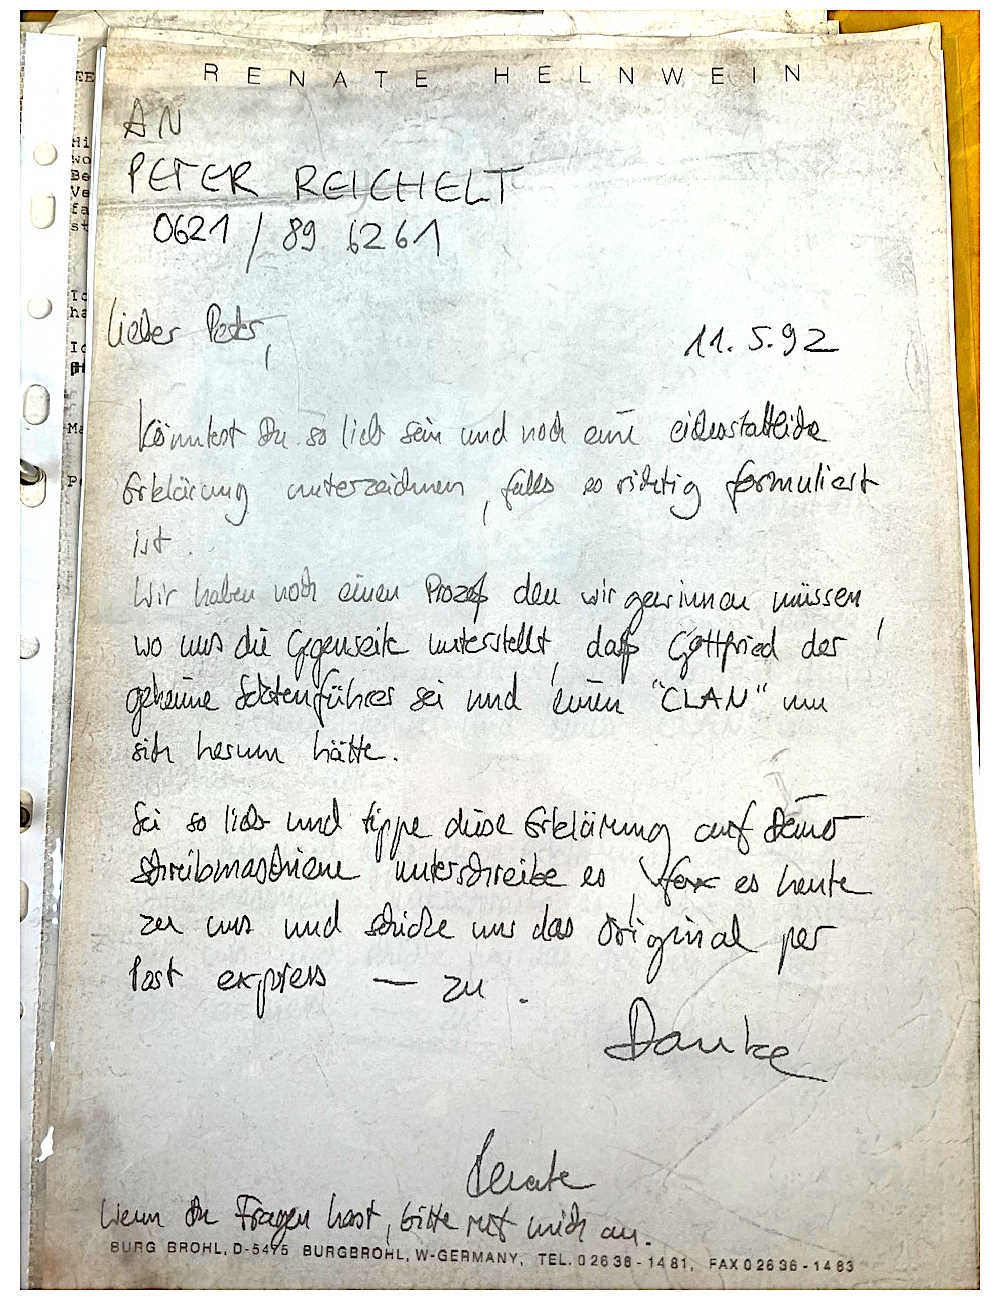 RENATE HELNWEIN
AN
PETER REICHELT
0621 / 89 6261
Lieber Peter,
11.5.92
Könntest Du so lieb sein und noch eine eidesstattliche
Erklärung unterzeichnen, falls es richtig formuliert
ist.
Wir haben noch einen Prozeß den wir gewinnen müssen,
wo uns die Gegenseite unterstellt, daß Gottfried der
geheime Sektenführer sei und einen "CLAN" um
sich herum hätte.
Sei so lieb und tippe diese Erklärung auf Deiner
Schreibmaschiene unterschreibe es, fax es heute
zu uns und schicke uns das Original per
Post express — zu.
Danke
Renate
Wenn Du Fragen hast, bitte ruf mich an.
BURG BROHL, D-5475 BURGBROHL, W-GERMANY, TEL. 02636-1481, FAX 02636-1483